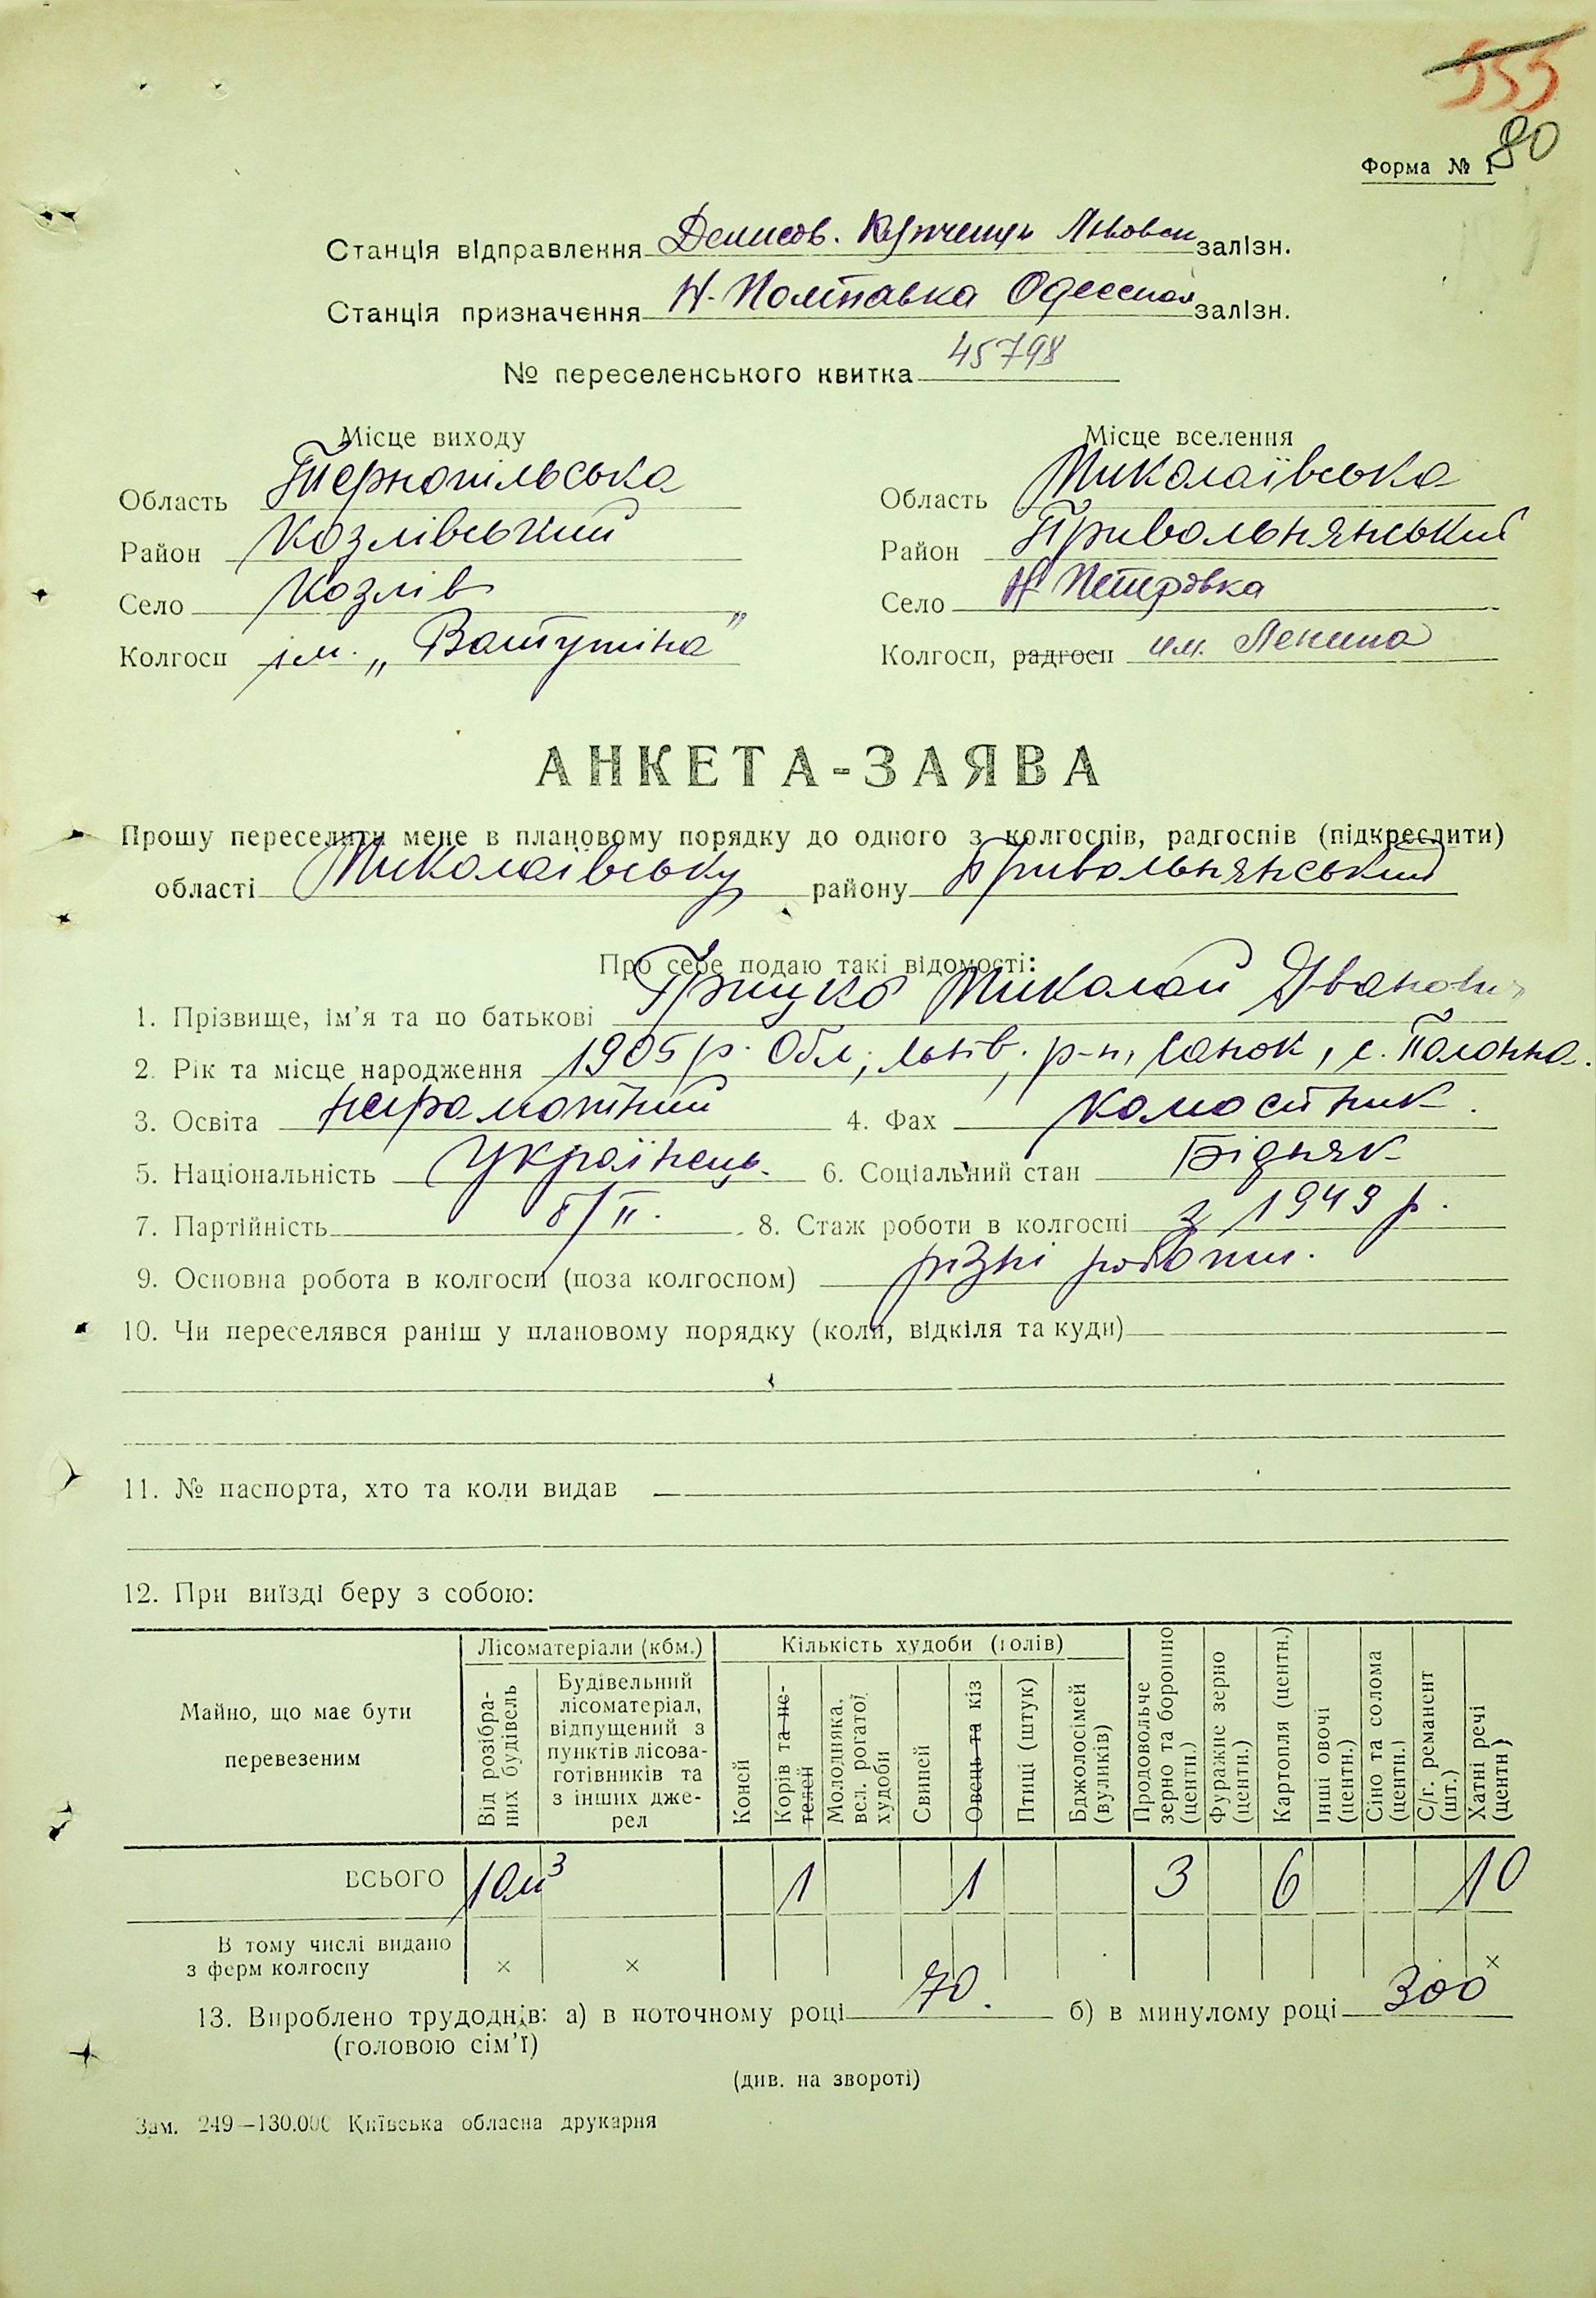 555
80
Форма № 1
Станція відправлення Денисов. Купченци Львовск залізн.
Станція призначення Н-Полтавка Одесская залізн.
№ переселенського квитка 45798
Місце виходу Місце вселення
Область Тернопільська Область Миколаївська
Район Козлівський Район Привольнянський
Село Козлів Село Н Петровка
Колгосп ім. „Ватутіна" Колгосп, радгосп им. Ленина
АНКЕТА-ЗАЯВА
Прошу переселити мене в плановому порядку до одного з колгоспів, радгоспів (підкреслити)
області Миколаївську району Привольнянський
Про себе подаю такі відомості:
1. Прізвище, ім'я та по батькові Грицко Миколай Іванович
2. Рік та місце народження 1905 р. Обл, Львів. р-н, Санок, с. Полонна.
3. Освіта неграмотний 4. Фах
5. Національність Українець. 6. Соціальний стан Бідняк
7. Партійність б/п. 8. Стаж роботи в колгоспі з 1949 р.
9. Основна робота в колгоспі (поза колгоспом) різні роботи.
10. Чи переселявся раніш у плановому порядку (коли, відкіля та куди)
11. № паспорта, хто та коли видав
12. При виїзді беру з собою:
Майно, що має бути перевезеним
Лісоматеріали (кбм.)
Від розібраних будівель
Будівельний лісоматеріал, відпущений з пунктів лісозаготівників та з інших джерел
Кількість худоби (голів)
Коней
Корів та нетелей
Молодняка, вел. рогатої худоби
Свиней
Овець та кіз
Птиці (штук)
Бджолосімей (вуликів)
Продовольче зерно та борошно (центн.)
Фуражне зерно (центн.)
Картопля (центн.)
Інші овочі (центн.)
Сіно та солома (центн.)
С/г. реманент (шт.)
Хатні речі (центн)
ВСЬОГО 10м³ 1 1 3 6 10
В тому числі видано з ферм колгоспу × × ×
13. Вироблено трудоднів: а) в поточному році 70. б) в минулому році 300
(головою сім'ї)
(див. на звороті)
Зам. 249—130.000 Київська обласна друкарня